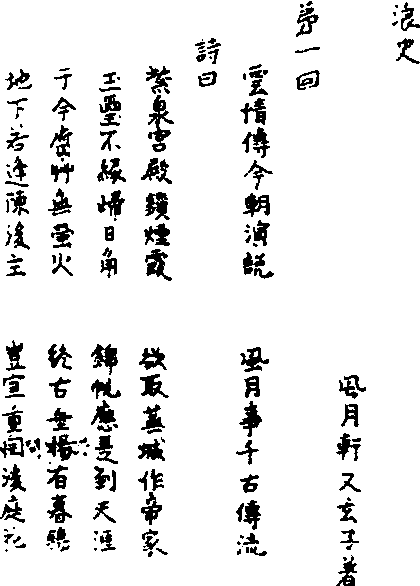 浪史
風月軒又玄子著
第一回
雲情傳今朝演説 風月事千古傳流
詩曰
紫泉宮殿鎖煙霞 欲取蕪城作帝家
玉璽不緣帰日角 錦帆應是到天涯
于今腐艸無螢火 終古垂楊有暮鴉
地下若逢陳後主 豈宜重問後庭花